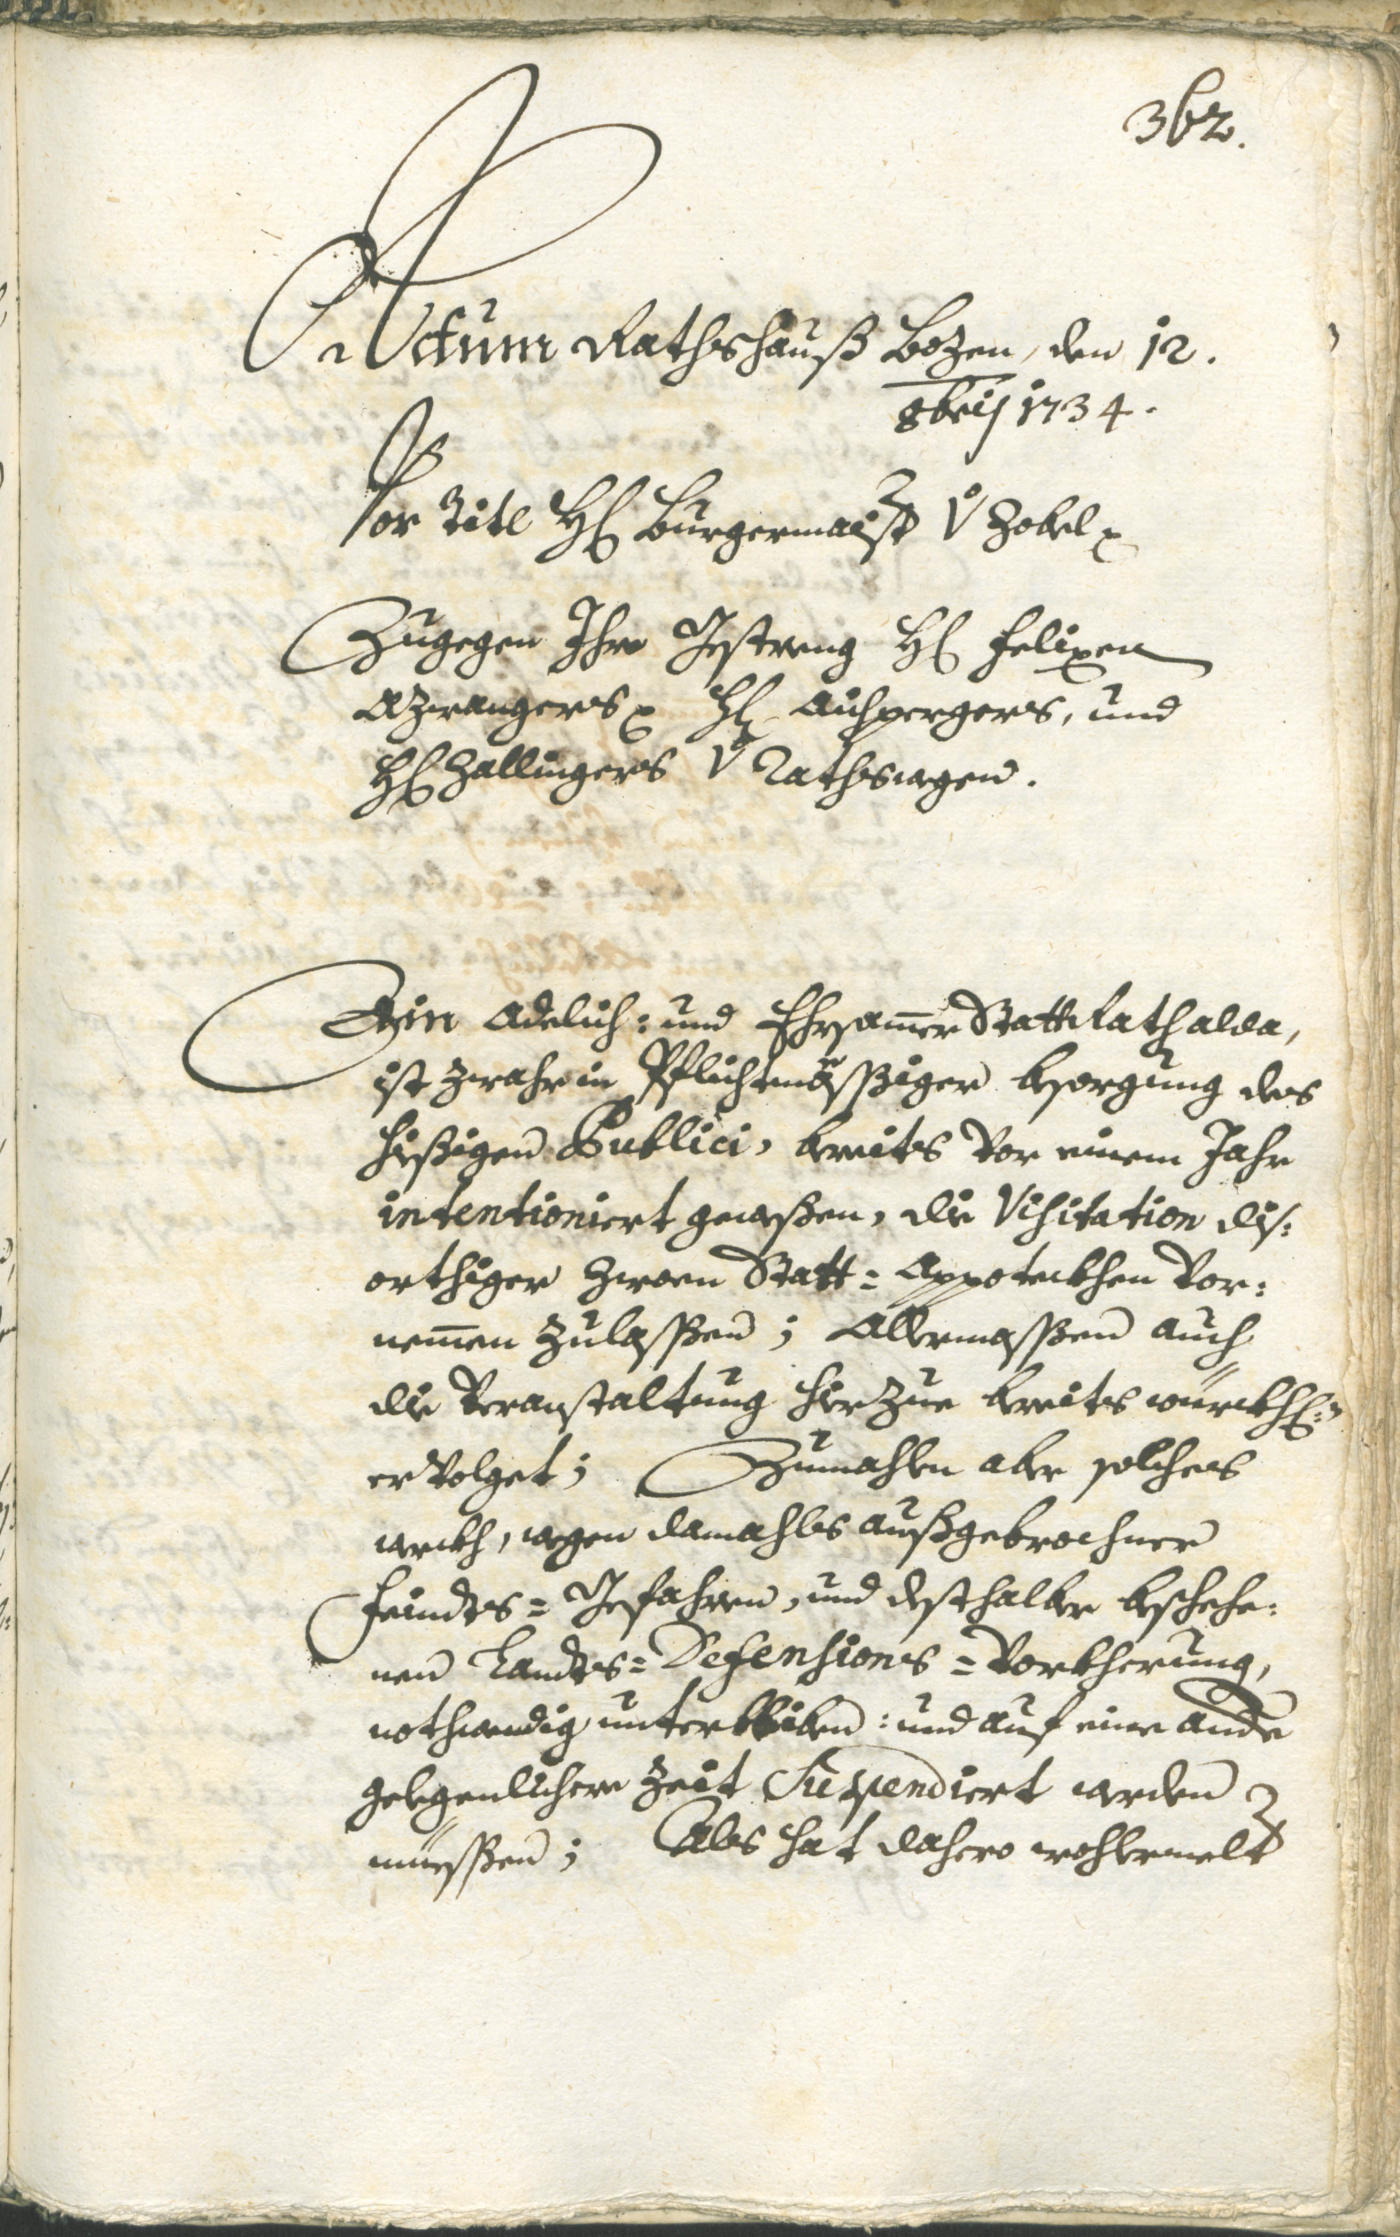 362.
Actum Rathshauß Bozen, den 12.
8bris 1734.
Vor Titl H: Burgermaister v Zobel
Zugegen Ihro Gestreng H: Felixen
Azwangers H: Auhpergers, und
H: Zallingers v Rathswegen.
Ein Adelich: und Ehrsamer Statt Rath alda,
ist zwahr in Pflichtmässiger besorgung des
hießigen Publici, bereits vor einem Jahr
intentioniert geweßen, die Visitation dis:
orthiger zween Statt= Appoteckhen vor:
nemen zulaßen; Allermaßßen auch
die veranstaltung hierzue bereits würckh:
ervolget; Zumahlen aber solches
werkh, wegen damahls außgebrochner
Feindts= Gefahren, und desthalber beschehe:
nen Landts= Defensions= Vorkherung,
nothwendig unterbliben: und auf eine ande
gelegenlichere Zeit Suspendiert werden
müeßßen; Als hat dahero wohlermelt